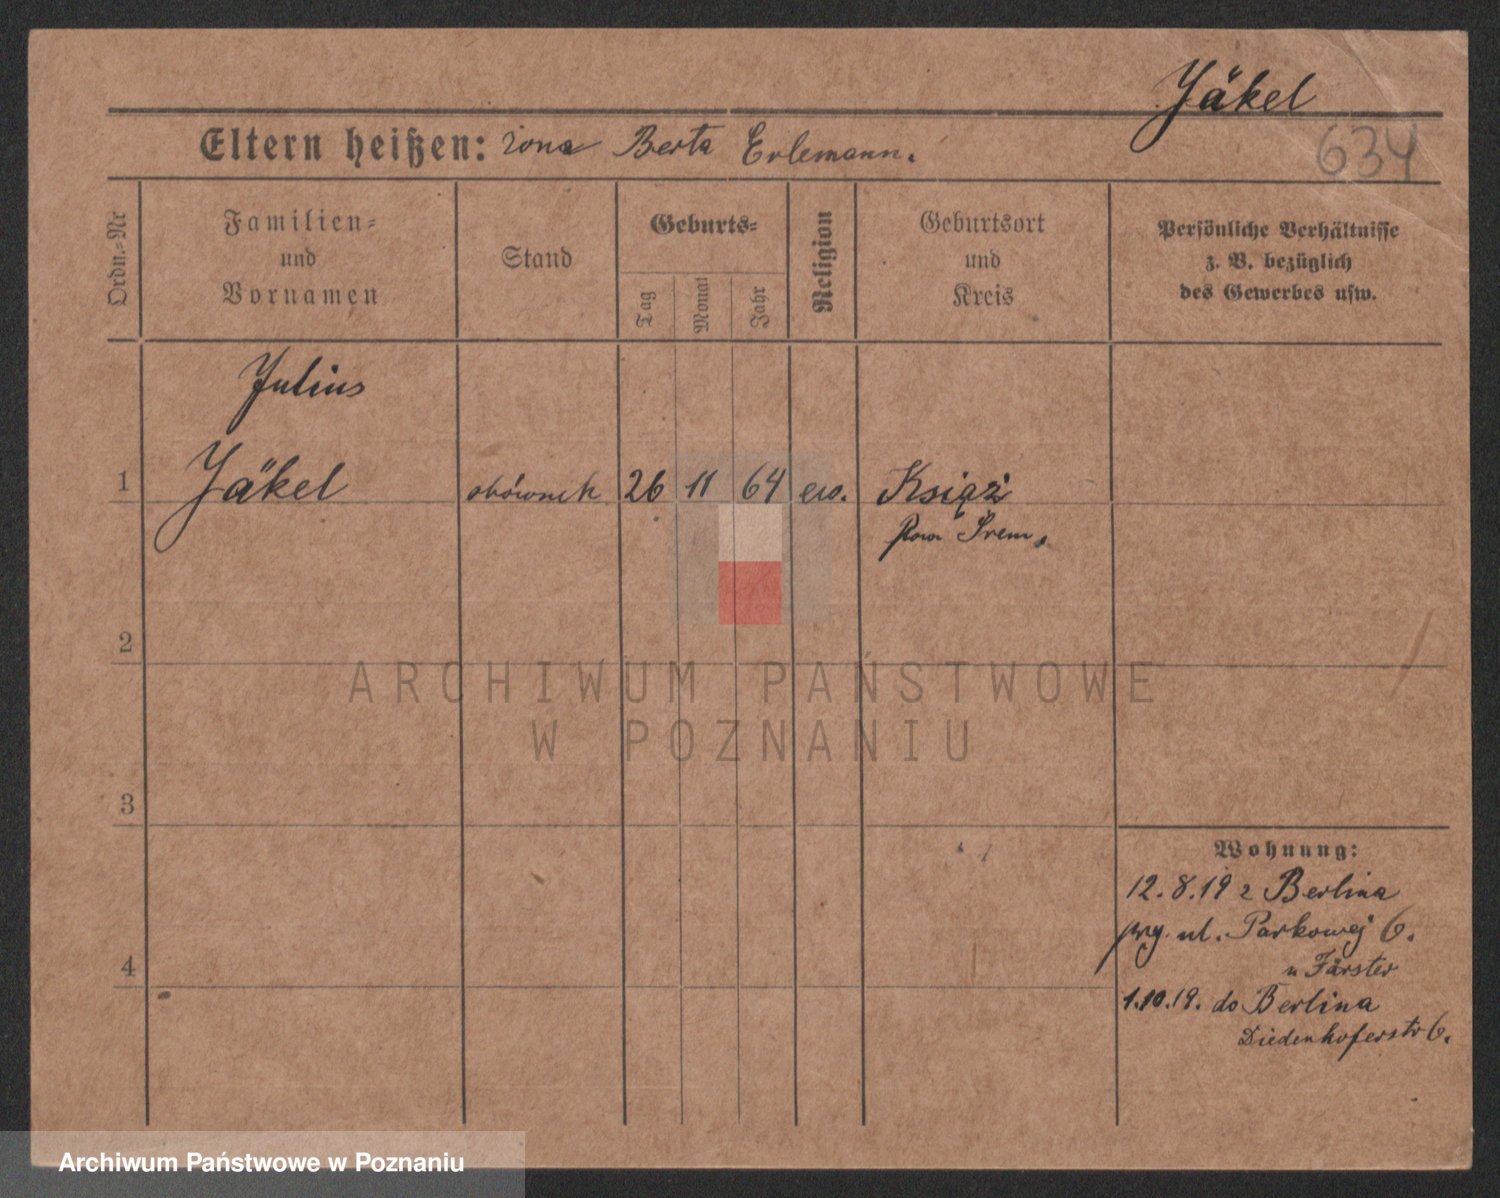 Jäkel
634
Eltern heißen: żona Berta Erlemann.
Ordn.-Nr
Familien-
und
Vornamen
Stand
Geburts-
Tag
Monat
Jahr
Religion
Geburtsort
und
Kreis
Persönliche Verhältnisse
z. B. bezüglich
des Gewerbes usw.
Julius
1 Jäkel 26 11 64 ew. Książ
pow Śrem,
2
3
4
Wohnung:
12.8.19 z Berlina
prg. ul. Parkowej 6.
u Färster
1.10.19. do Berlina
Diedenhoferstr 6.
ARCHIWUM PAŃSTWOWE
W POZNANIU
Archiwum Państwowe w Poznaniu